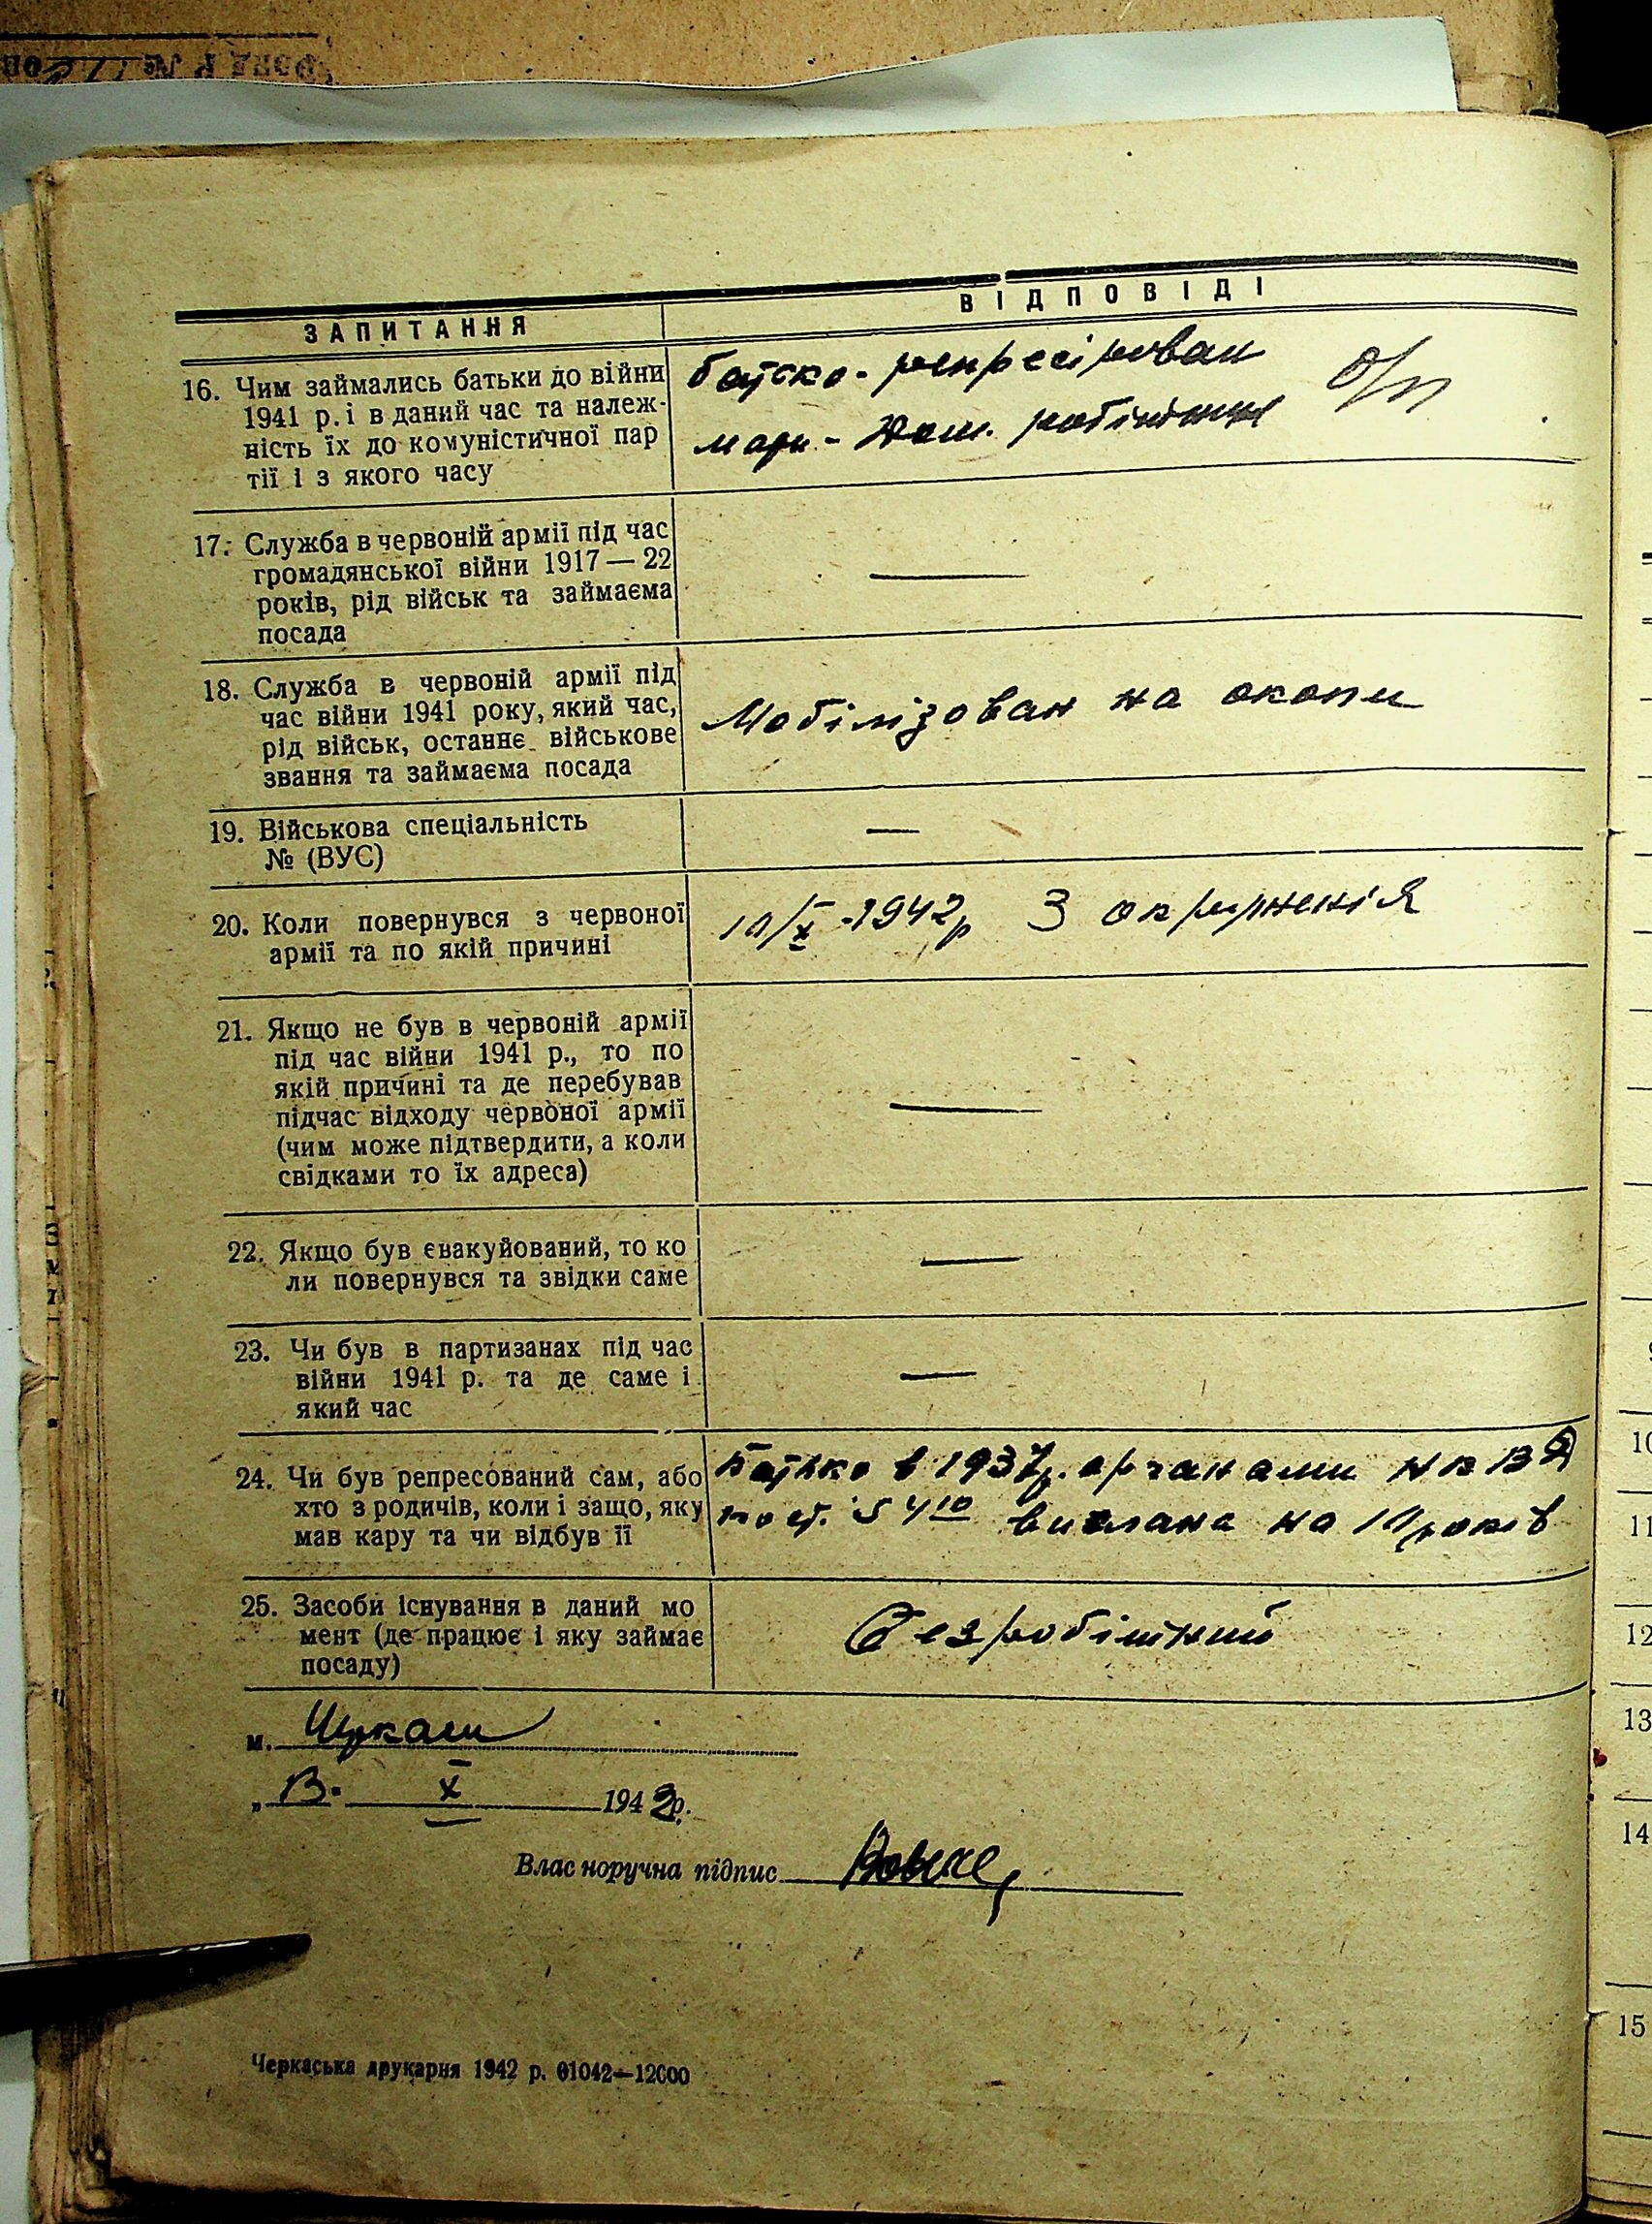 ЗАПИТАННЯ
ВІДПОВІДІ
16. Чим займались батьки до війни
1941 р. і в даний час та належ-
ність їх до комуністичної пар
тії і з якого часу
батько - репресірован б/п
мати - Дом. робітниця
17. Служба в червоній армії під час
громадянської війни 1917 — 22
років, рід військ та займаєма
посада
—
18. Служба в червоній армії під
час війни 1941 року, який час,
рід військ, останнє військове
звання та займаєма посада
Мобілізован на окопи
19. Військова спеціальність
№ (ВУС)
—
20. Коли повернувся з червоної
армії та по якій причині
10/X -1942р З окруженія
21. Якщо не був в червоній армії
під час війни 1941 р., то по
якій причині та де перебував
підчас відходу червоної армії
(чим може підтвердити, а коли
свідками то їх адреса)
—
22. Якщо був євакуйований, то ко
ли повернувся та звідки саме
—
23. Чи був в партизанах під час
війни 1941 р. та де саме і
який час
—
24. Чи був репресований сам, або
хто з родичів, коли і защо, яку
мав кару та чи відбув її
Батько в 1937р. органами НКВД
по ст. 54 10 на 10 років
25. Засоби існування в даний мо
мент (де працює і яку займає
посаду)
безробітний
м. Черкаси
„ 13. X 1942р.
Власноручна підпис
Черкаська друкарня 1942 р. 01042—12000
10
11
12
13
14
15